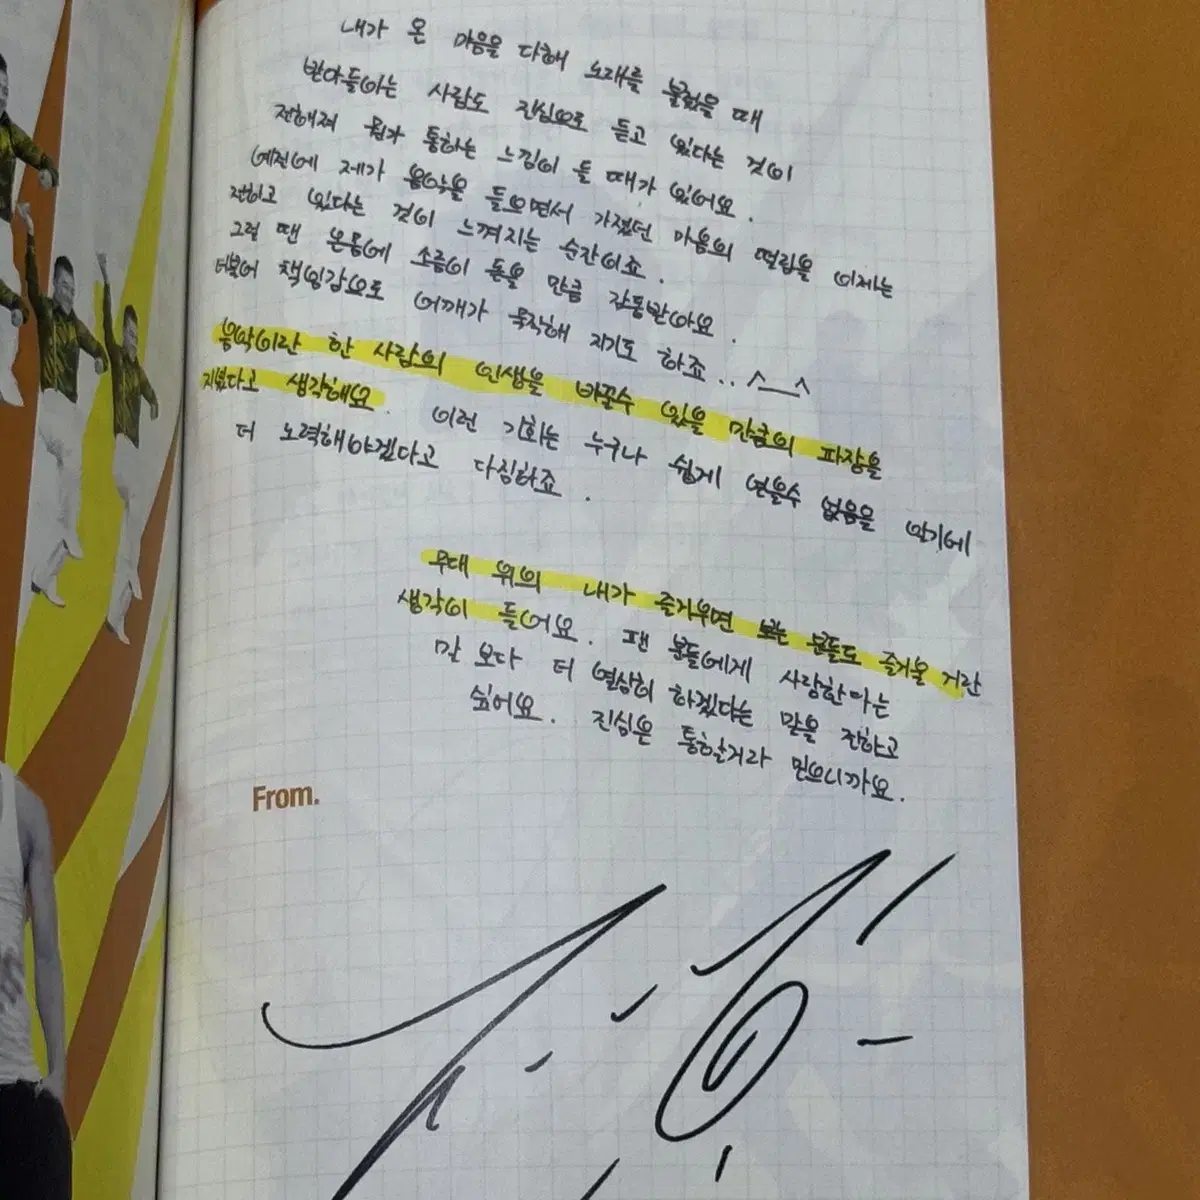 내가 온 마음을 다해 노래를 불렀을 때
받아들이는 사람도 진심으로 듣고 있다는 것이
전해져 뭔가 통하는 느낌이 들 때가 있어요.
예전에 제가 음악을 들으면서 가졌던 마음의 떨림을 이제는
전하고 있다는 것이 느껴지는 순간이죠.
그럴 땐 온몸에 소름이 돋을 만큼 감동받아요.
더불어 책임감으로 어깨가 묵직해 지기도 하죠.. ^__^
음악이란 한 사람의 인생을 바꿀수 있을 만큼의 파장을
지녔다고 생각해요. 이런 기회는 누구나 쉽게 얻을수 없음을 알기에
더 노력해야겠다고 다짐하죠.
무대 위의 내가 즐거우면 보는 분들도 즐거울 거란
생각이 들어요. 팬 분들에게 사랑한다는
말 보다 더 열심히 하겠다는 말을 전하고
싶어요. 진심은 통할거라 믿으니까요.
From.